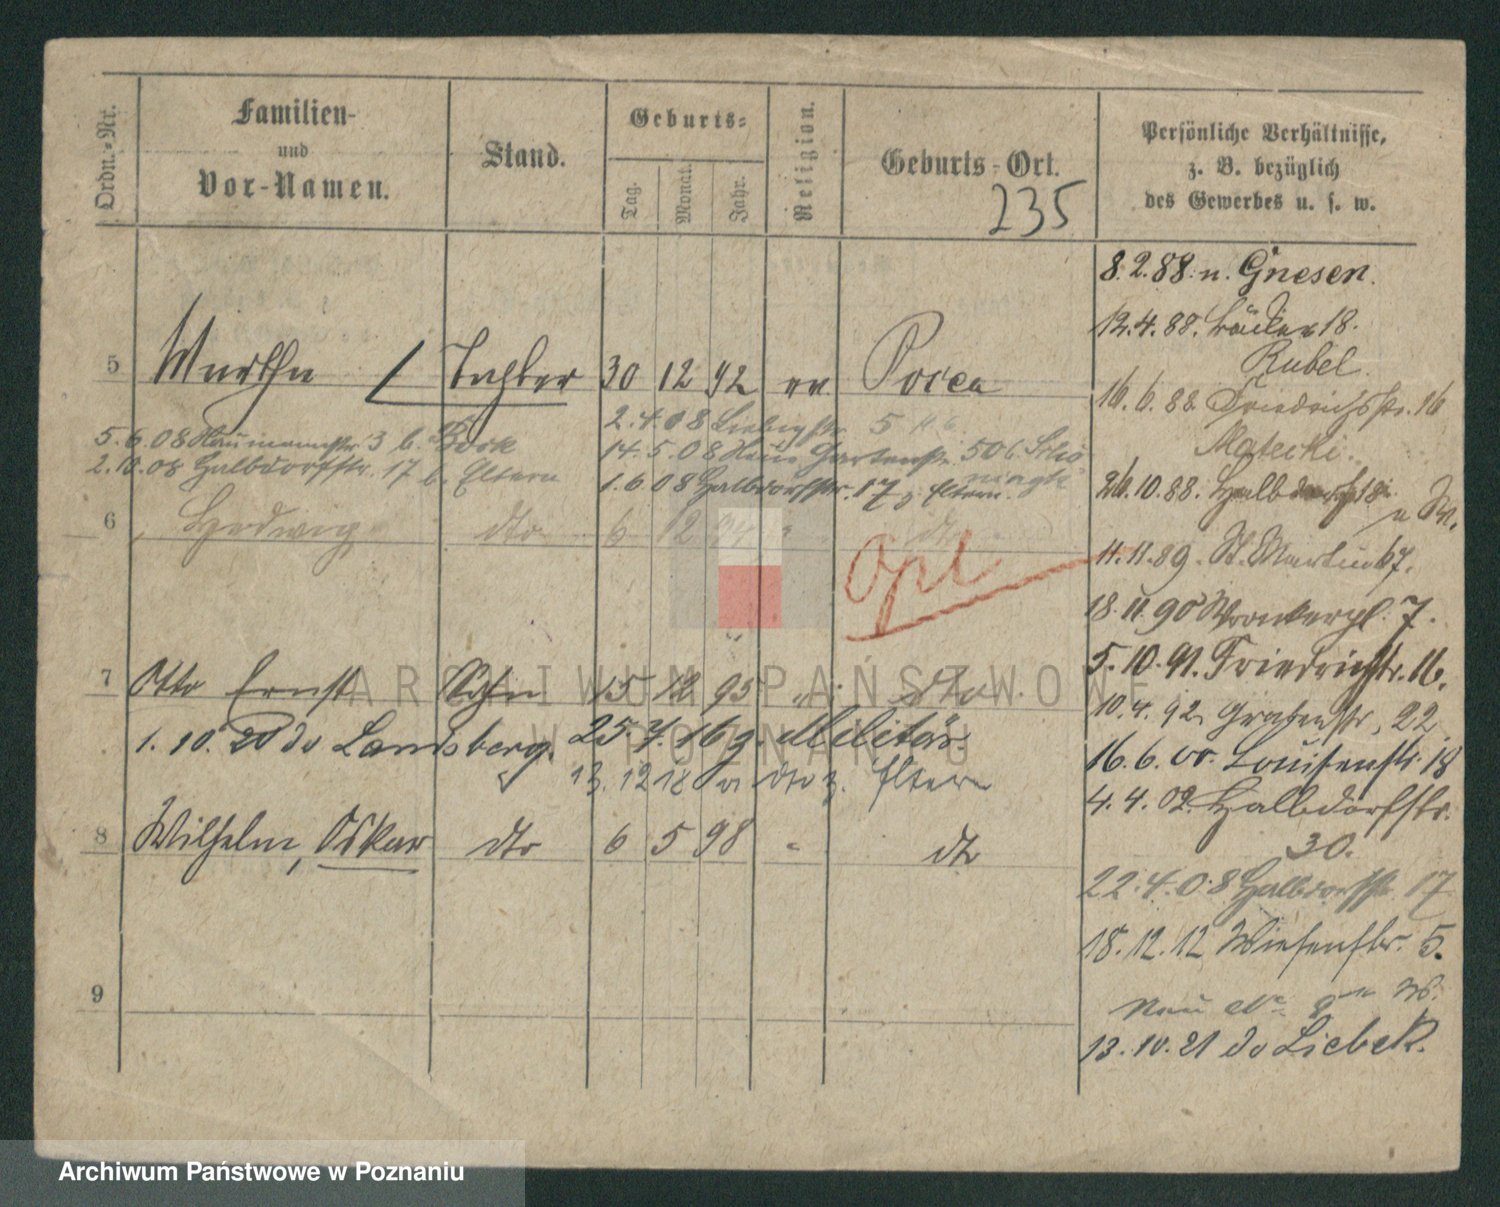 Ordn.-Nr.
Familien-
und
Vor-Namen.
Stand.
Geburts-
Tag.
Monat.
Jahr.
Religion.
Geburts-Ort.
235
Persönliche Verhältnisse,
z. B. bezüglich
des Gewerbes u. s. w.
8.2.88. n. Gnesen.
12.4.88. 18.
Rubel.
5 Martha Tochter 30 12 92 ev. Posen
16.6.88 Friedrichstr. 16
Matecki.
2.4.08 5
5.6.08 3 b. Bock
14.5.08 Gartenstr. 50 b.
2.10.08 Halbdorfstr. 17 b. Eltern
1.6.08 Halbdorfstr. 17 z. Eltern.
26.10.88. Halbdorfstr. 18
6 Hedwig dto 6 12 dto
Opl
11.11.89. St. Martin 67.
18.11.90 Wronkerpl. 7.
5.10.91. Friedrichstr. 16.
7 Otto Ernst Sohn 15 12 95 " dto
10.4.92 Grabenstr. 22
1.10.20 do Landsberg. 25.7.16 z. Militär.
16.6.00. Louisenstr. 18
13.12.18 v dto z. Eltern
4.4.02. Halbdorfstr.
30.
8 Wilhelm, Oskar dto 6 5 98 " dto
22.4.08 Halbdorfstr. 17
18.12.12 Wiesenstr. 5.
9
13.10.21 do
ARCHIWUM PAŃSTWOWE
W POZNANIU
Archiwum Państwowe w Poznaniu